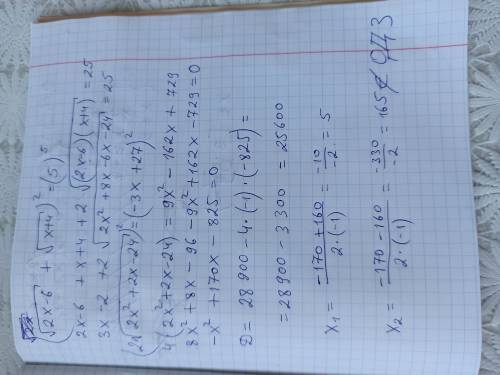 (√(2x-6) + √(x+4))² = (5)⁵
2x-6 + x+4 + 2√((2x-6)(x+4)) = 25
3x - 2 + 2√(2x² + 8x - 6x - 24) = 25
(2√(2x² + 2x - 24))² = (-3x + 27)²
4(2x² + 2x - 24) = 9x² - 162x + 729
8x² + 8x - 96 - 9x² + 162x - 729 = 0
-x² + 170x - 825 = 0
D = 28 900 - 4·(-1)·(-825) =
= 28 900 - 3 300 = 25600
x₁ = (-170 + 160)/(2·(-1)) = -10/-2 = 5
x₂ = (-170 - 160)/(2·(-1)) = -330/-2 = 165 ∉ ОДЗ